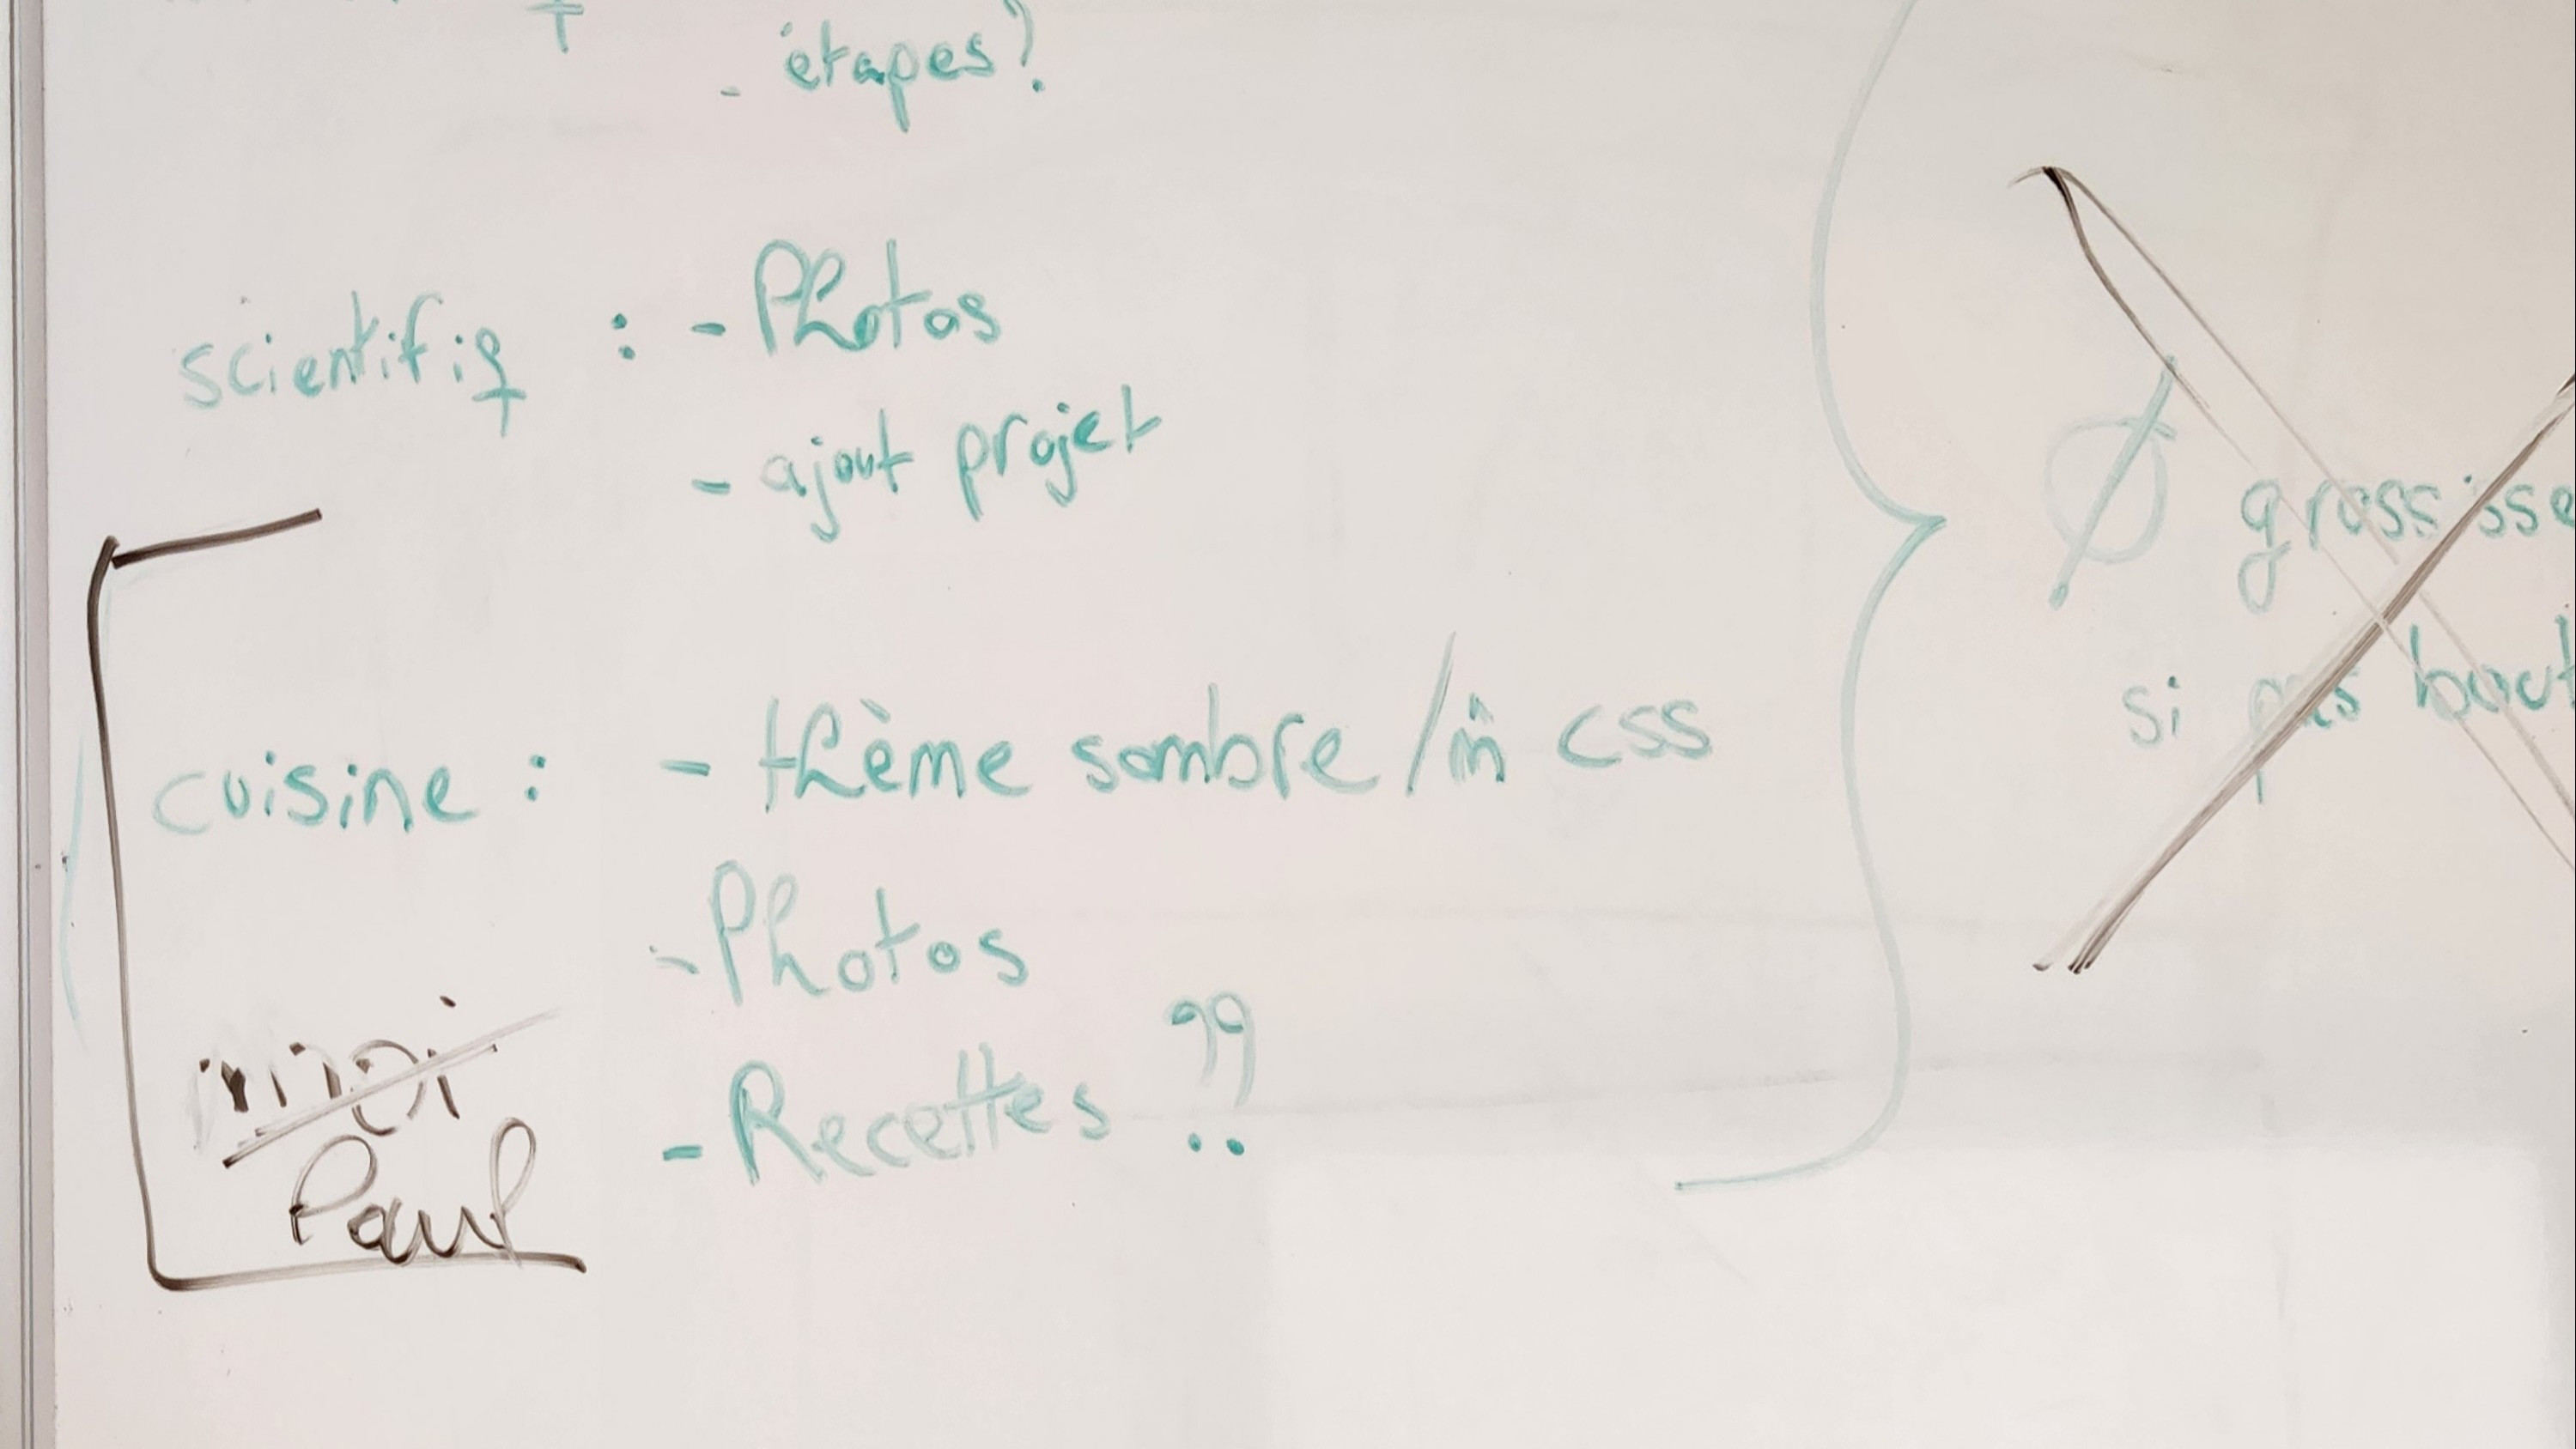 - étapes?
scientifiq : - Photos
- ajout projet
cuisine : - thème sombre / m̂ css
- Photos
- Recettes ??
moi
Paul
Ø grossisse
si pas bout